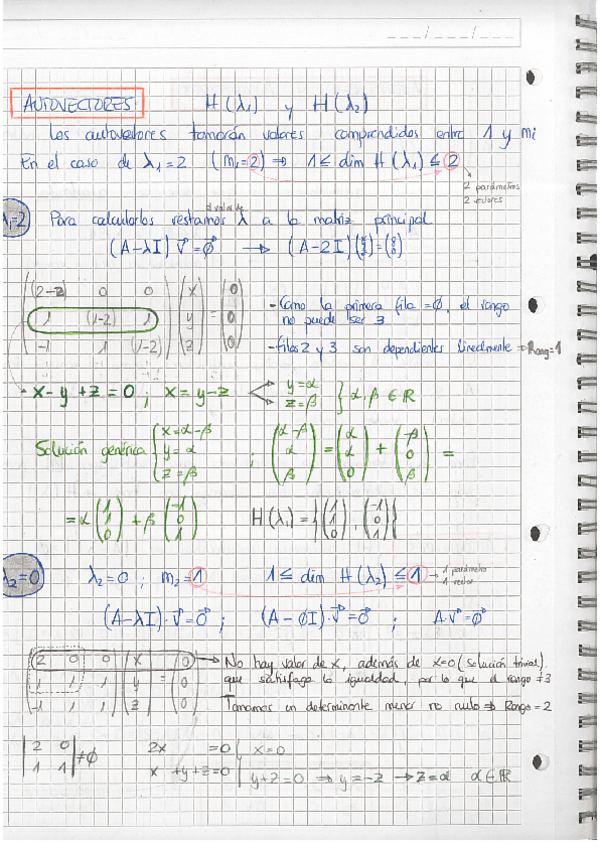 AUTOVECTORES H(λ₁) y H(λ₂)
Los autovectores tomarán valores comprendidos entre 1 y mi
En el caso de λ₁=2 (m₁=2) ⇒ 1 ≤ dim H(λ₁) ≤ 2
2 parámetros
2 vectores
λ₁=2 Para calcularlos restamos el valor de λ a la matriz principal
(A-λI) v⃗ = ∅⃗ → (A-2I)(x y z) = (0 0 0)
(2-2) 0 0 | x | 0
1 (1-2) 1 | y | = | 0
-1 1 (1-2) | z | 0
- Como la primera fila = ∅, el rango
no puede ser 3
- filas 2 y 3 son dependientes linealmente ⇒ Rang=1
x-y+z=0 ; x=y-z < y=α z=β } α, β ∈ ℝ
Solución genérica { x=α-β y=α z=β ; (α-β α β) = (α α 0) + (-β 0 β) =
= α (1 1 0) + β (-1 0 1) H(λ₁) = { (1 1 0), (-1 0 1) }
λ₂=0 λ₂=0 ; m₂=1 1 ≤ dim H(λ₂) ≤ 1 → 1 parámetro
1 vector
(A-λI)·v⃗=0⃗ ; (A-∅I)·v⃗=0⃗ ; A·v⃗=0⃗
2 0 0 | x | 0 → No hay valor de x, además de x=0 (solución trivial)
1 1 1 | y | = | 0 que satisfaga la igualdad, por lo que el rango ≠3
-1 1 1 | z | 0 Tomamos un determinante menor no nulo ⇒ Rango=2
|2 0| 2x =0 { x=0
|1 1| ≠∅ x +y+z=0 { y+z=0 ⇒ y=-z → z=α α∈ℝ